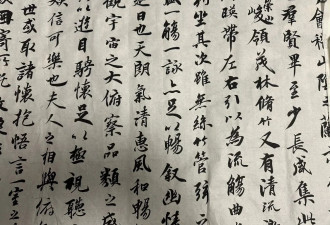 會稽山陰之蘭
群賢畢至少長咸集此
峻領茂林脩竹又有清流
暎帶左右引以為流觴曲
坐其次雖無絲竹管弦之
觴一詠亦足以暢敘幽情
是日也天朗氣清惠風和暢
觀宇宙之大俯察品類之盛
以遊目騁懷足以極視聽
娛信可樂也夫人之相與俯
世或取諸懷抱悟言一室之
寄所託放